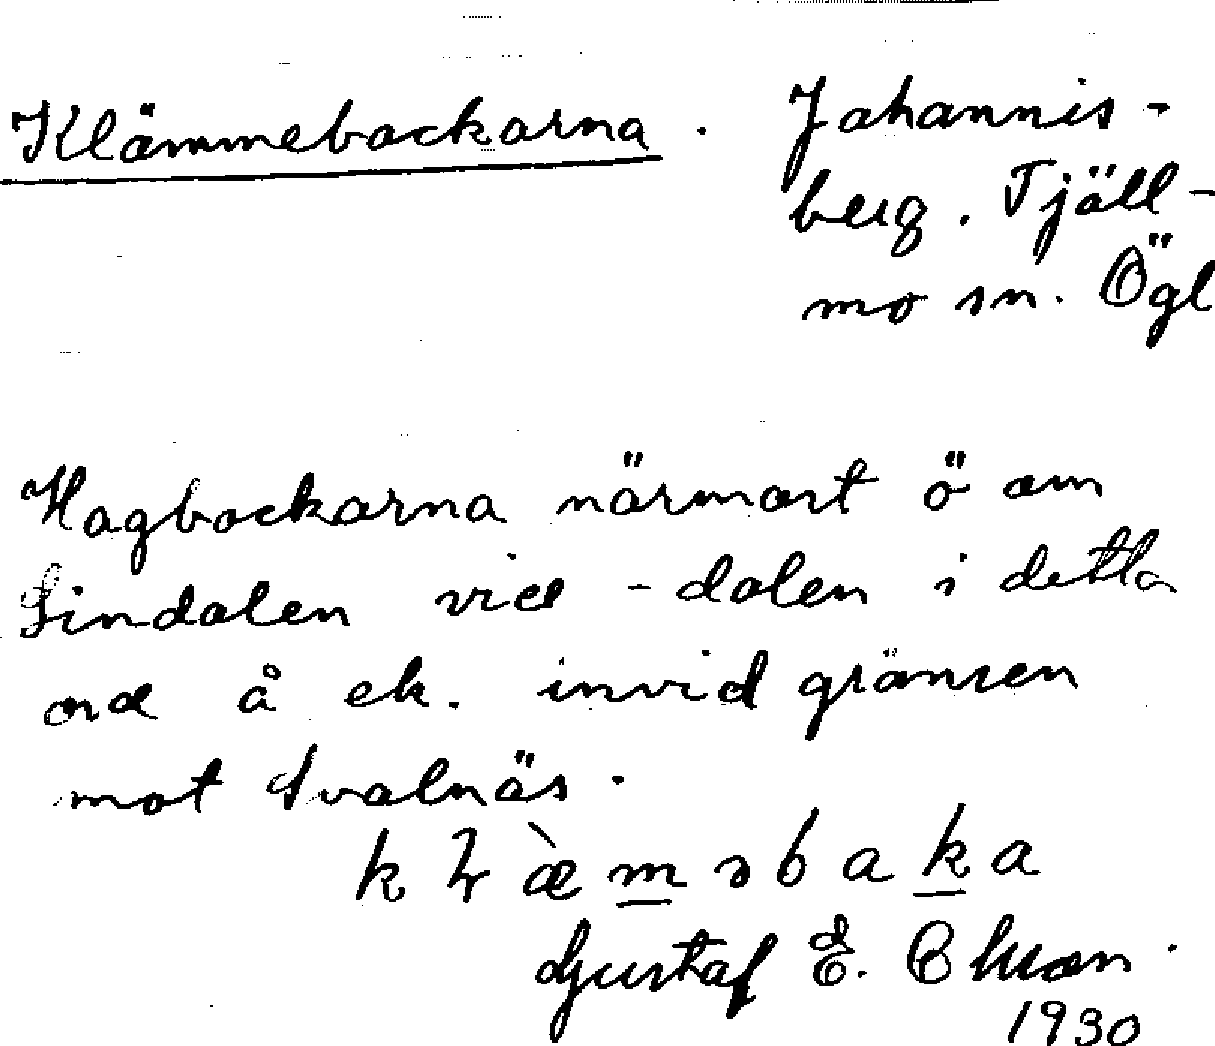 Klämmebackarna. Johannis-
berg. Tjäll-
mo sn. Ögl
Hagbackarna närmast ö om
Lindalen vid -dalen i detta
ord å ek. invid gränsen
mot Svalnäs.
kɫæ̀m̲əbak̲a
Gustaf E.
1930